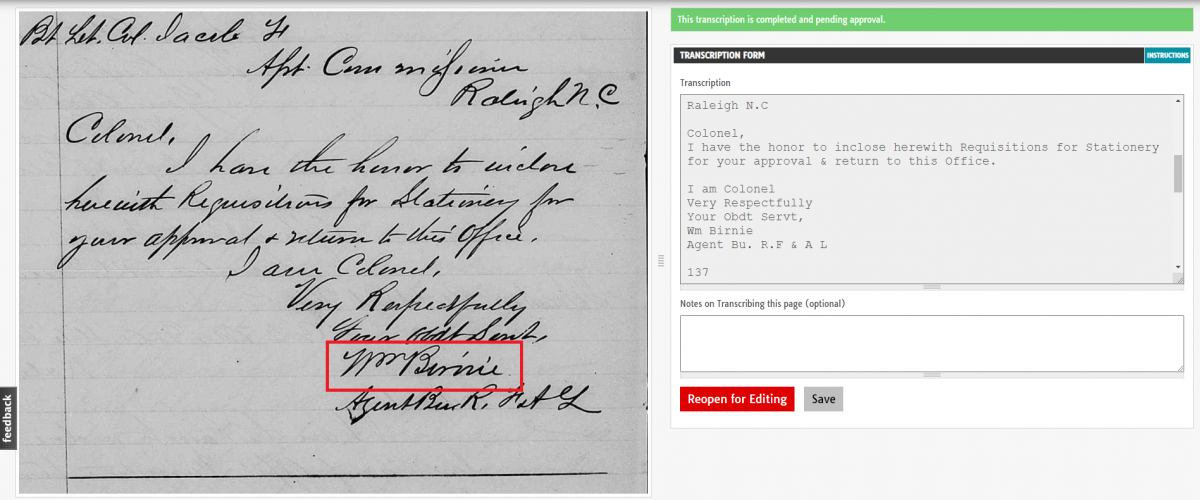 Bt Lt. Col. Jacob F
Asst. Commissioner
Raleigh N.C
Colonel,
I have the honor to inclose
herewith Requisitions for Stationery for
your approval & return to this Office.
I am Colonel,
Very Respectfully
Your Obdt Servt,
Wm Birnie
Agent Bu R. F & A L
feedback
This transcription is completed and pending approval.
TRANSCRIPTION FORM
INSTRUCTIONS
Transcription
Raleigh N.C
Colonel,
I have the honor to inclose herewith Requisitions for Stationery
for your approval & return to this Office.
I am Colonel
Very Respectfully
Your Obdt Servt,
Wm Birnie
Agent Bu. R.F & A L
137
Notes on Transcribing this page (optional)
Reopen for Editing
Save